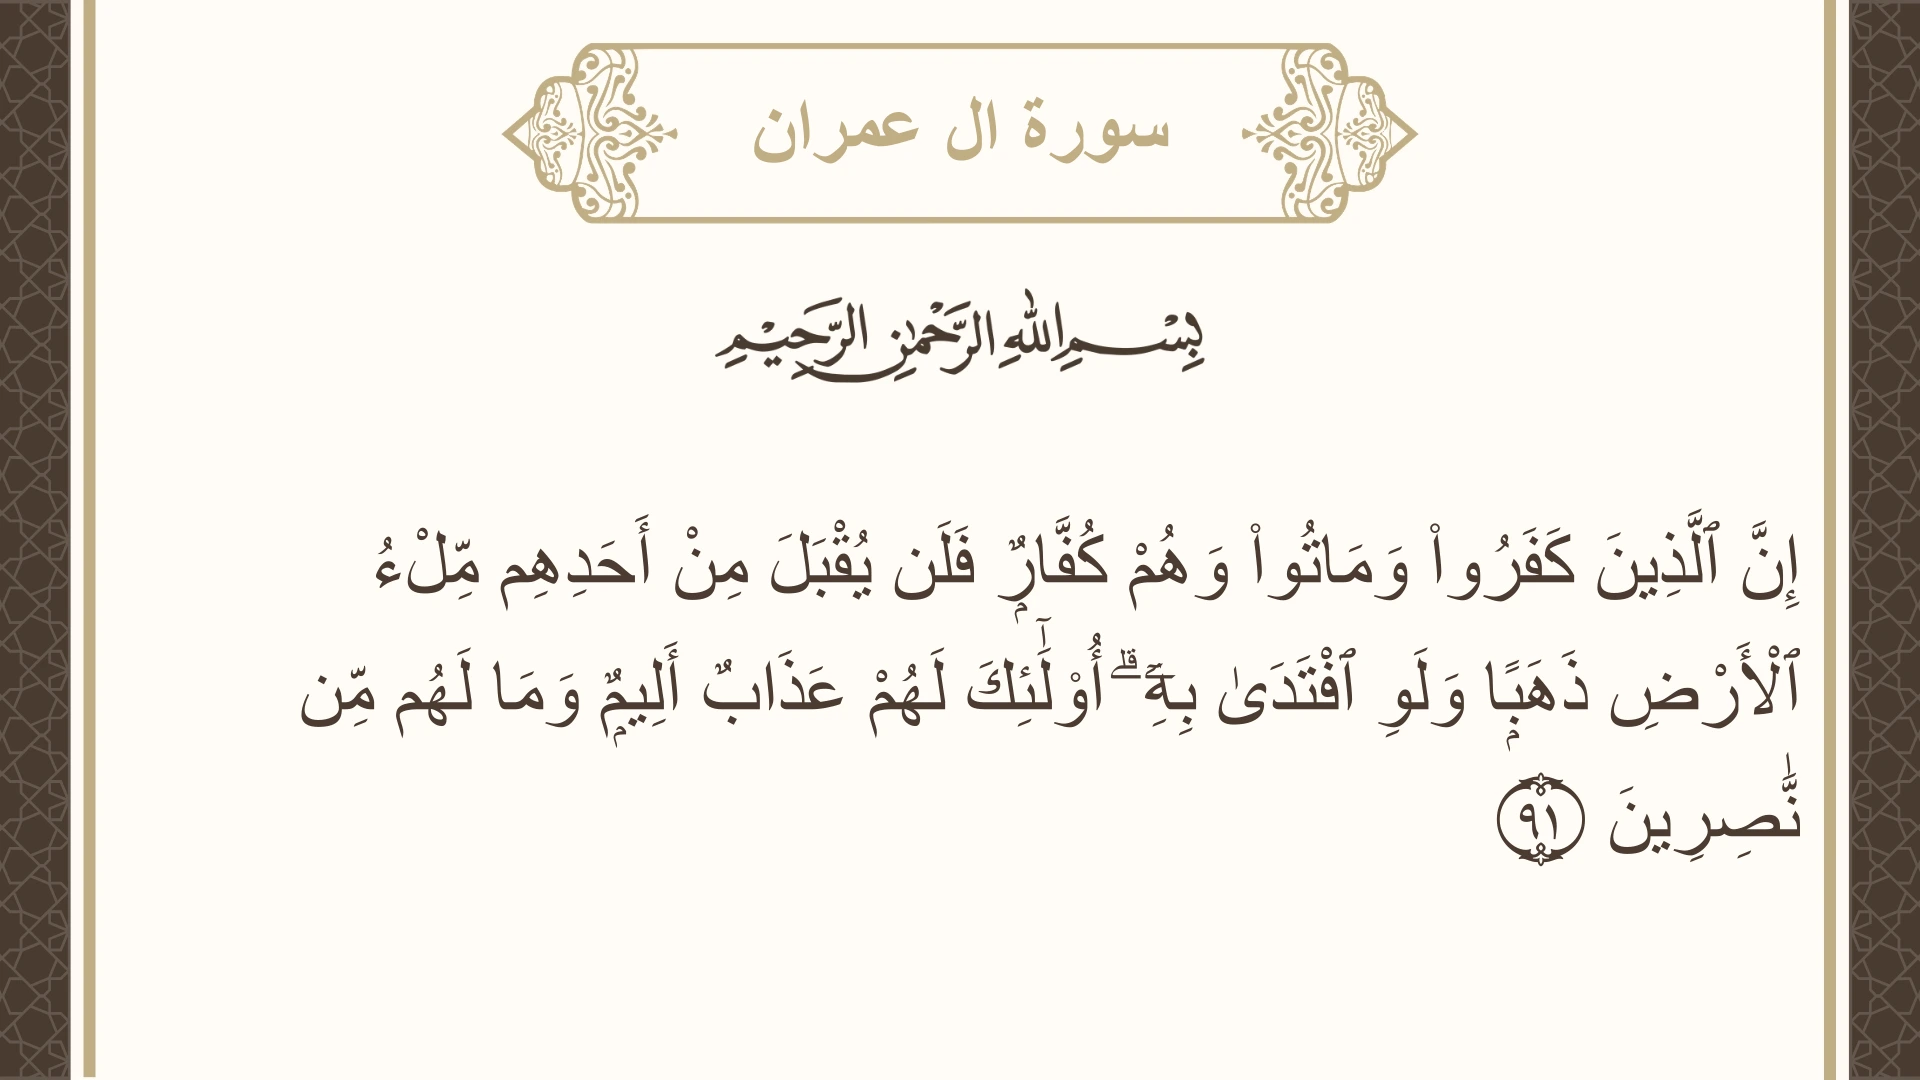 سورة ال عمران
بِسْمِ اللهِ الرَّحْمٰنِ الرَّحِيْمِ
إِنَّ ٱلَّذِينَ كَفَرُوا۟ وَمَاتُوا۟ وَهُمْ كُفَّارٌۭ فَلَن يُقْبَلَ مِنْ أَحَدِهِم مِّلْءُ
ٱلْأَرْضِ ذَهَبًۭا وَلَوِ ٱفْتَدَىٰ بِهِۦٓ ۗ أُو۟لَـٰٓئِكَ لَهُمْ عَذَابٌ أَلِيمٌۭ وَمَا لَهُم مِّن
نَّـٰصِرِينَ ٩١